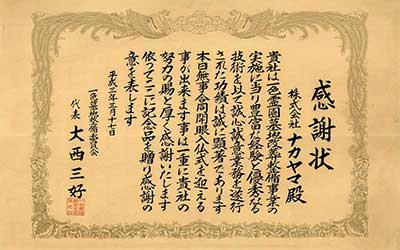 感謝状
株式会社 ナカヤマ殿
貴社は一色霊園墓地改葬整備事業の
実施に当り豊富な経験と優秀なる
技術を以て誠心誠意業務を遂行
された功績は誠に顕著であります
本日無事合同開眼入仏式を迎える
事が出来ます事は一重に貴社の
努力の賜と厚く感謝いたします
依ってここに記念品を贈り感謝の
意を表します
平成三年三月十七日
一色墓地整備委員会
代表 大西三好